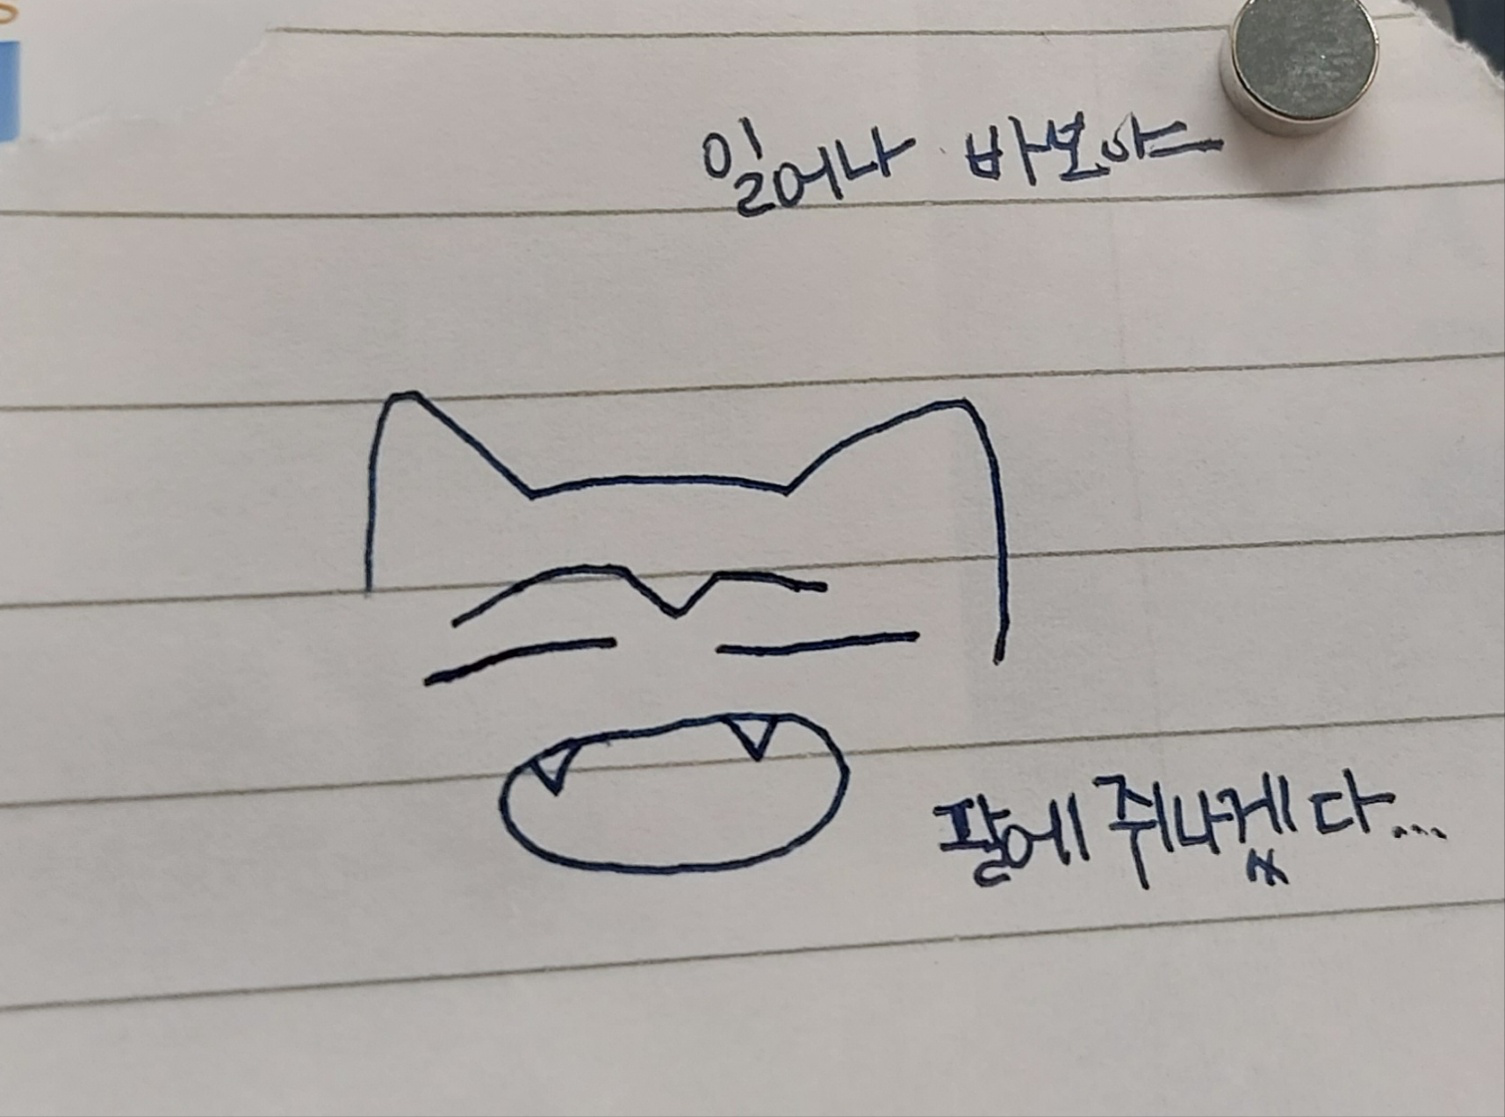 일어나 바보야
팔에 쥐나겠다...